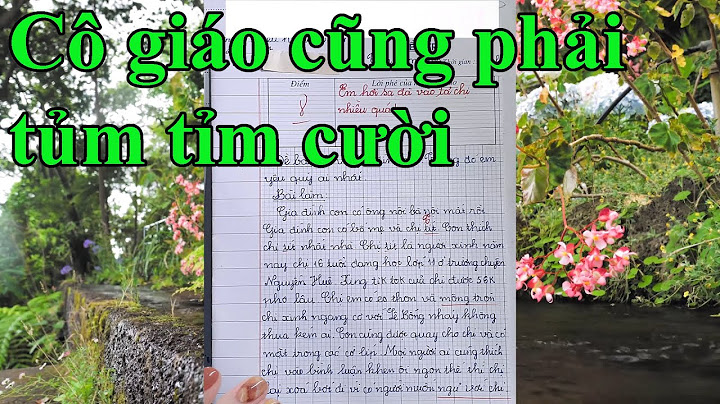 Cô giáo cũng phải
tủm tỉm cười
Điểm
Lời phê của
8
Em hơi sa đà vào tả chị
nhiều quá!
yêu quý ai nhất.
Bài làm
Gia đình con có ông nội bà nội mất rồi
Gia đình con có bố mẹ và chị Con thích
chị nhất nhà. Chị là người xinh năm
nay chị 16 tuổi đang học lớp 11 ở trường chuyên
Nguyễn Huệ. Tung tik tok của chị được 56K
phô lâu. Chị em có eo thon và mông tròn
chị xinh ngang cơ với Lê Bống nhảy không
thua kém ai. Con cũng được quay cho chị và có
mặt trong các cờ líp. Mọi người ai cũng thích
chị vào bình luận khen ôi ngon thế thì chị
lại xóa bởi đi vì có người muốn ngủ với chị